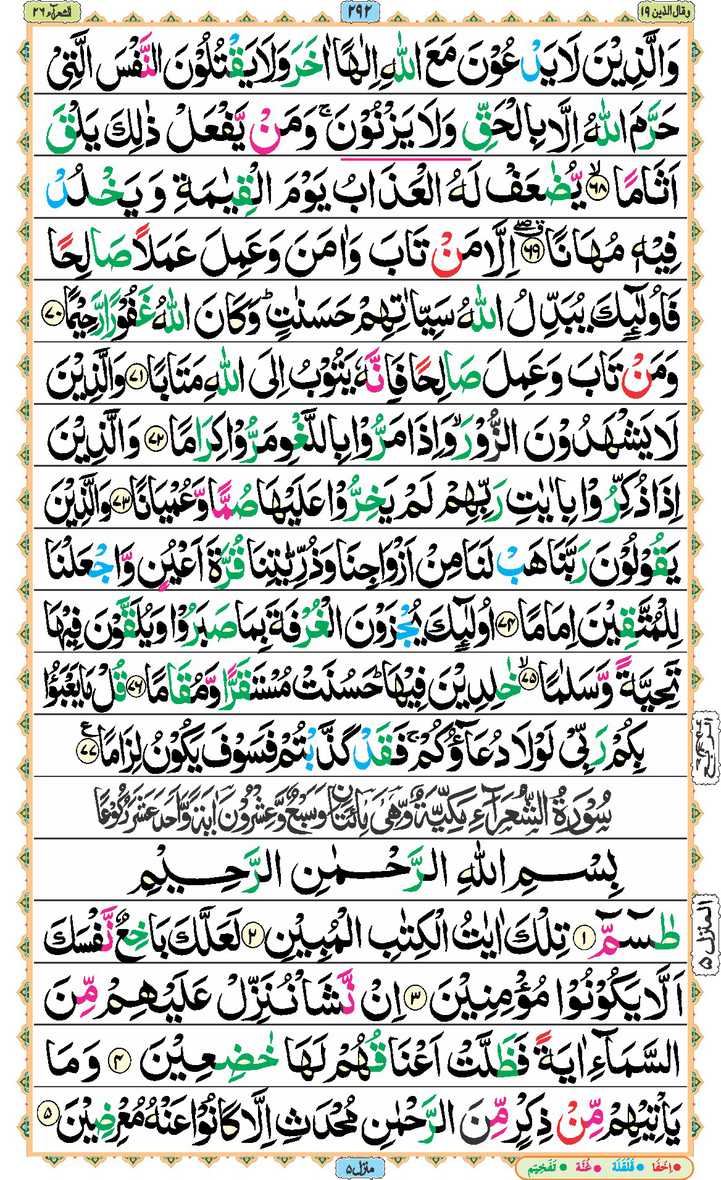 وقال الذين ١٩
٢٩٢
الشعرآء ٢٦
وَالَّذِيْنَ لَا يَدْعُوْنَ مَعَ اللّٰهِ اِلٰهًا اٰخَرَ وَلَا يَقْتُلُوْنَ النَّفْسَ الَّتِيْ
حَرَّمَ اللّٰهُ اِلَّا بِالْحَقِّ وَلَا يَزْنُوْنَ ۚ وَمَنْ يَّفْعَلْ ذٰلِكَ يَلْقَ
اَثَامًا ۙ﴿٦٨﴾ يُّضٰعَفْ لَهُ الْعَذَابُ يَوْمَ الْقِيٰمَةِ وَيَخْلُدْ
فِيْهٖ مُهَانًا ﴿٦٩﴾ اِلَّا مَنْ تَابَ وَاٰمَنَ وَعَمِلَ عَمَلًا صَالِحًا
فَاُولٰٓئِكَ يُبَدِّلُ اللّٰهُ سَيِّاٰتِهِمْ حَسَنٰتٍ ؕ وَكَانَ اللّٰهُ غَفُوْرًا رَّحِيْمًا ﴿٧٠﴾
وَمَنْ تَابَ وَعَمِلَ صَالِحًا فَاِنَّهٗ يَتُوْبُ اِلَى اللّٰهِ مَتَابًا ﴿٧١﴾ وَالَّذِيْنَ
لَا يَشْهَدُوْنَ الزُّوْرَ ۙ وَاِذَا مَرُّوْا بِاللَّغْوِ مَرُّوْا كِرَامًا ﴿٧٢﴾ وَالَّذِيْنَ
اِذَا ذُكِّرُوْا بِاٰيٰتِ رَبِّهِمْ لَمْ يَخِرُّوْا عَلَيْهَا صُمًّا وَّعُمْيَانًا ﴿٧٣﴾ وَالَّذِيْنَ
يَقُوْلُوْنَ رَبَّنَا هَبْ لَنَا مِنْ اَزْوَاجِنَا وَذُرِّيّٰتِنَا قُرَّةَ اَعْيُنٍ وَّاجْعَلْنَا
لِلْمُتَّقِيْنَ اِمَامًا ﴿٧٤﴾ اُولٰٓئِكَ يُجْزَوْنَ الْغُرْفَةَ بِمَا صَبَرُوْا وَيُلَقَّوْنَ فِيْهَا
تَحِيَّةً وَّسَلٰمًا ۙ﴿٧٥﴾ خٰلِدِيْنَ فِيْهَا ؕ حَسُنَتْ مُسْتَقَرًّا وَّمُقَامًا ﴿٧٦﴾ قُلْ مَا يَعْبَؤُا
بِكُمْ رَبِّيْ لَوْلَا دُعَآؤُكُمْ ۚ فَقَدْ كَذَّبْتُمْ فَسَوْفَ يَكُوْنُ لِزَامًا ﴿٧٧﴾ ع
سُوْرَةُ الشُّعَرَآءِ مَكِّيَّةٌ وَّهِيَ مِائَتَانِ وَسَبْعٌ وَّعِشْرُوْنَ اٰيَةً وَّاَحَدَ عَشَرَ رُكُوْعًا
بِسْمِ اللّٰهِ الرَّحْمٰنِ الرَّحِيْمِ
طٰسٓمّٓ ﴿١﴾ تِلْكَ اٰيٰتُ الْكِتٰبِ الْمُبِيْنِ ﴿٢﴾ لَعَلَّكَ بَاخِعٌ نَّفْسَكَ
اَلَّا يَكُوْنُوْا مُؤْمِنِيْنَ ﴿٣﴾ اِنْ نَّشَاْ نُنَزِّلْ عَلَيْهِمْ مِّنَ
السَّمَآءِ اٰيَةً فَظَلَّتْ اَعْنَاقُهُمْ لَهَا خٰضِعِيْنَ ﴿٤﴾ وَمَا
يَاْتِيْهِمْ مِّنْ ذِكْرٍ مِّنَ الرَّحْمٰنِ مُحْدَثٍ اِلَّا كَانُوْا عَنْهُ مُعْرِضِيْنَ ﴿٥﴾
المنزل ٥
منزل ٥
اِخفَا قَلْقَلَة غُنَّة تَفْخِيْم